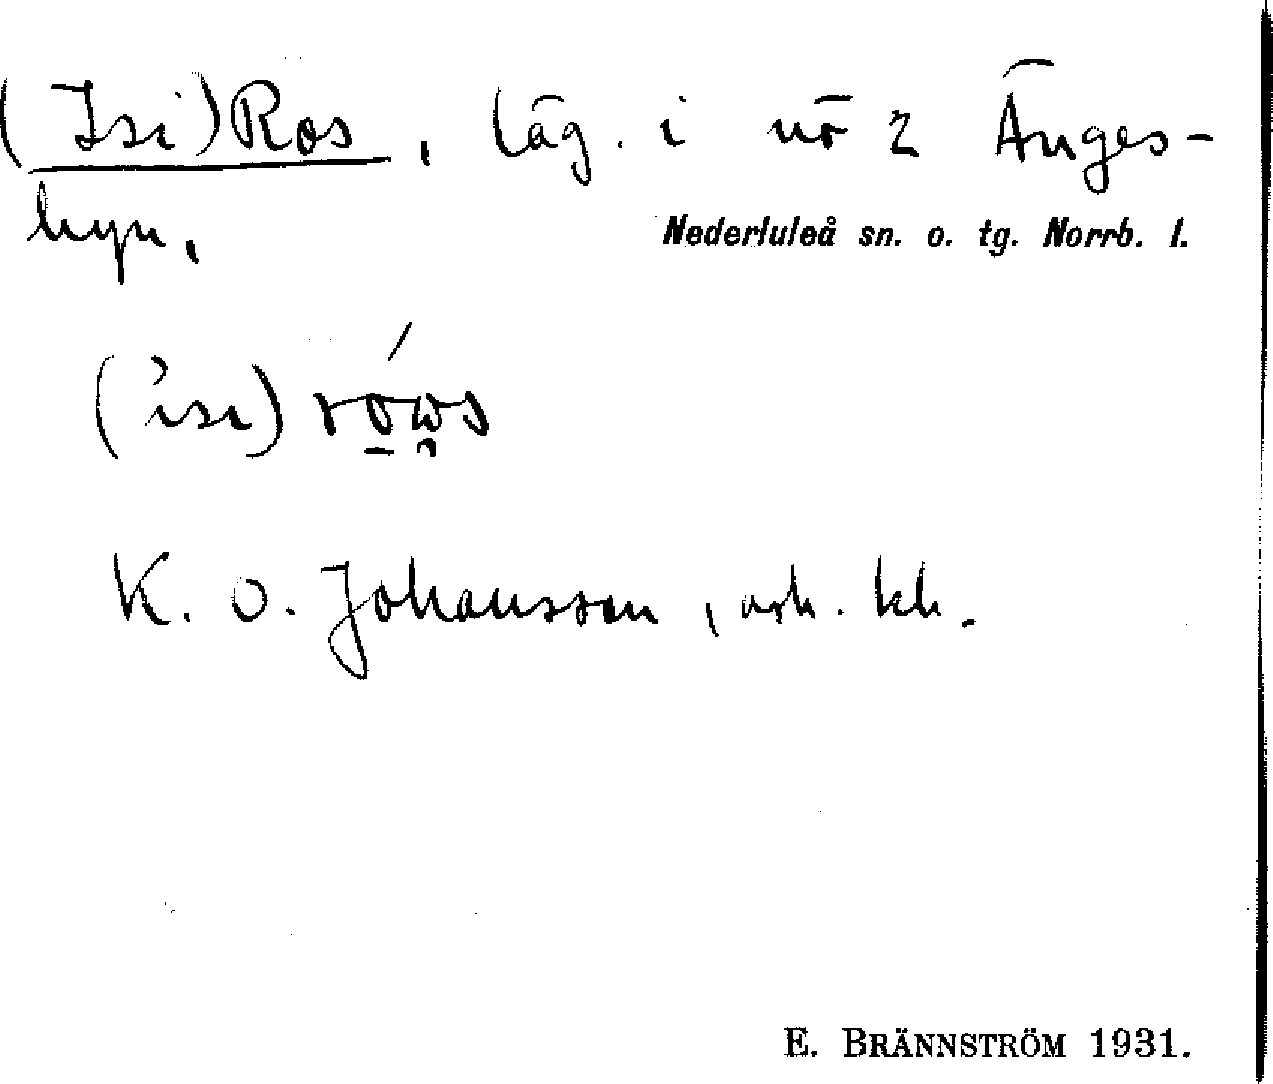 (Isi)Ros, läg. i nr 2 Änges-
byn.
Nederluleå sn. o. tg. Norrb. l.
(isi) róws
K. O. Johansson, ark. kh.
E. BRÄNNSTRÖM 1931.